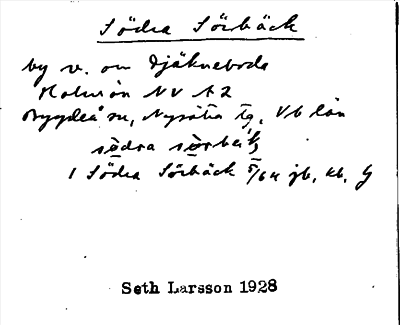 Södra Sörbäck
by v. om Djäkneboda
Holmön NV A2
Bygdeå sn, Nysätra tg, Vb län
södra sörbäk
1 Södra Sörbäck 5/64 jb, kb, G
Seth Larsson 1928